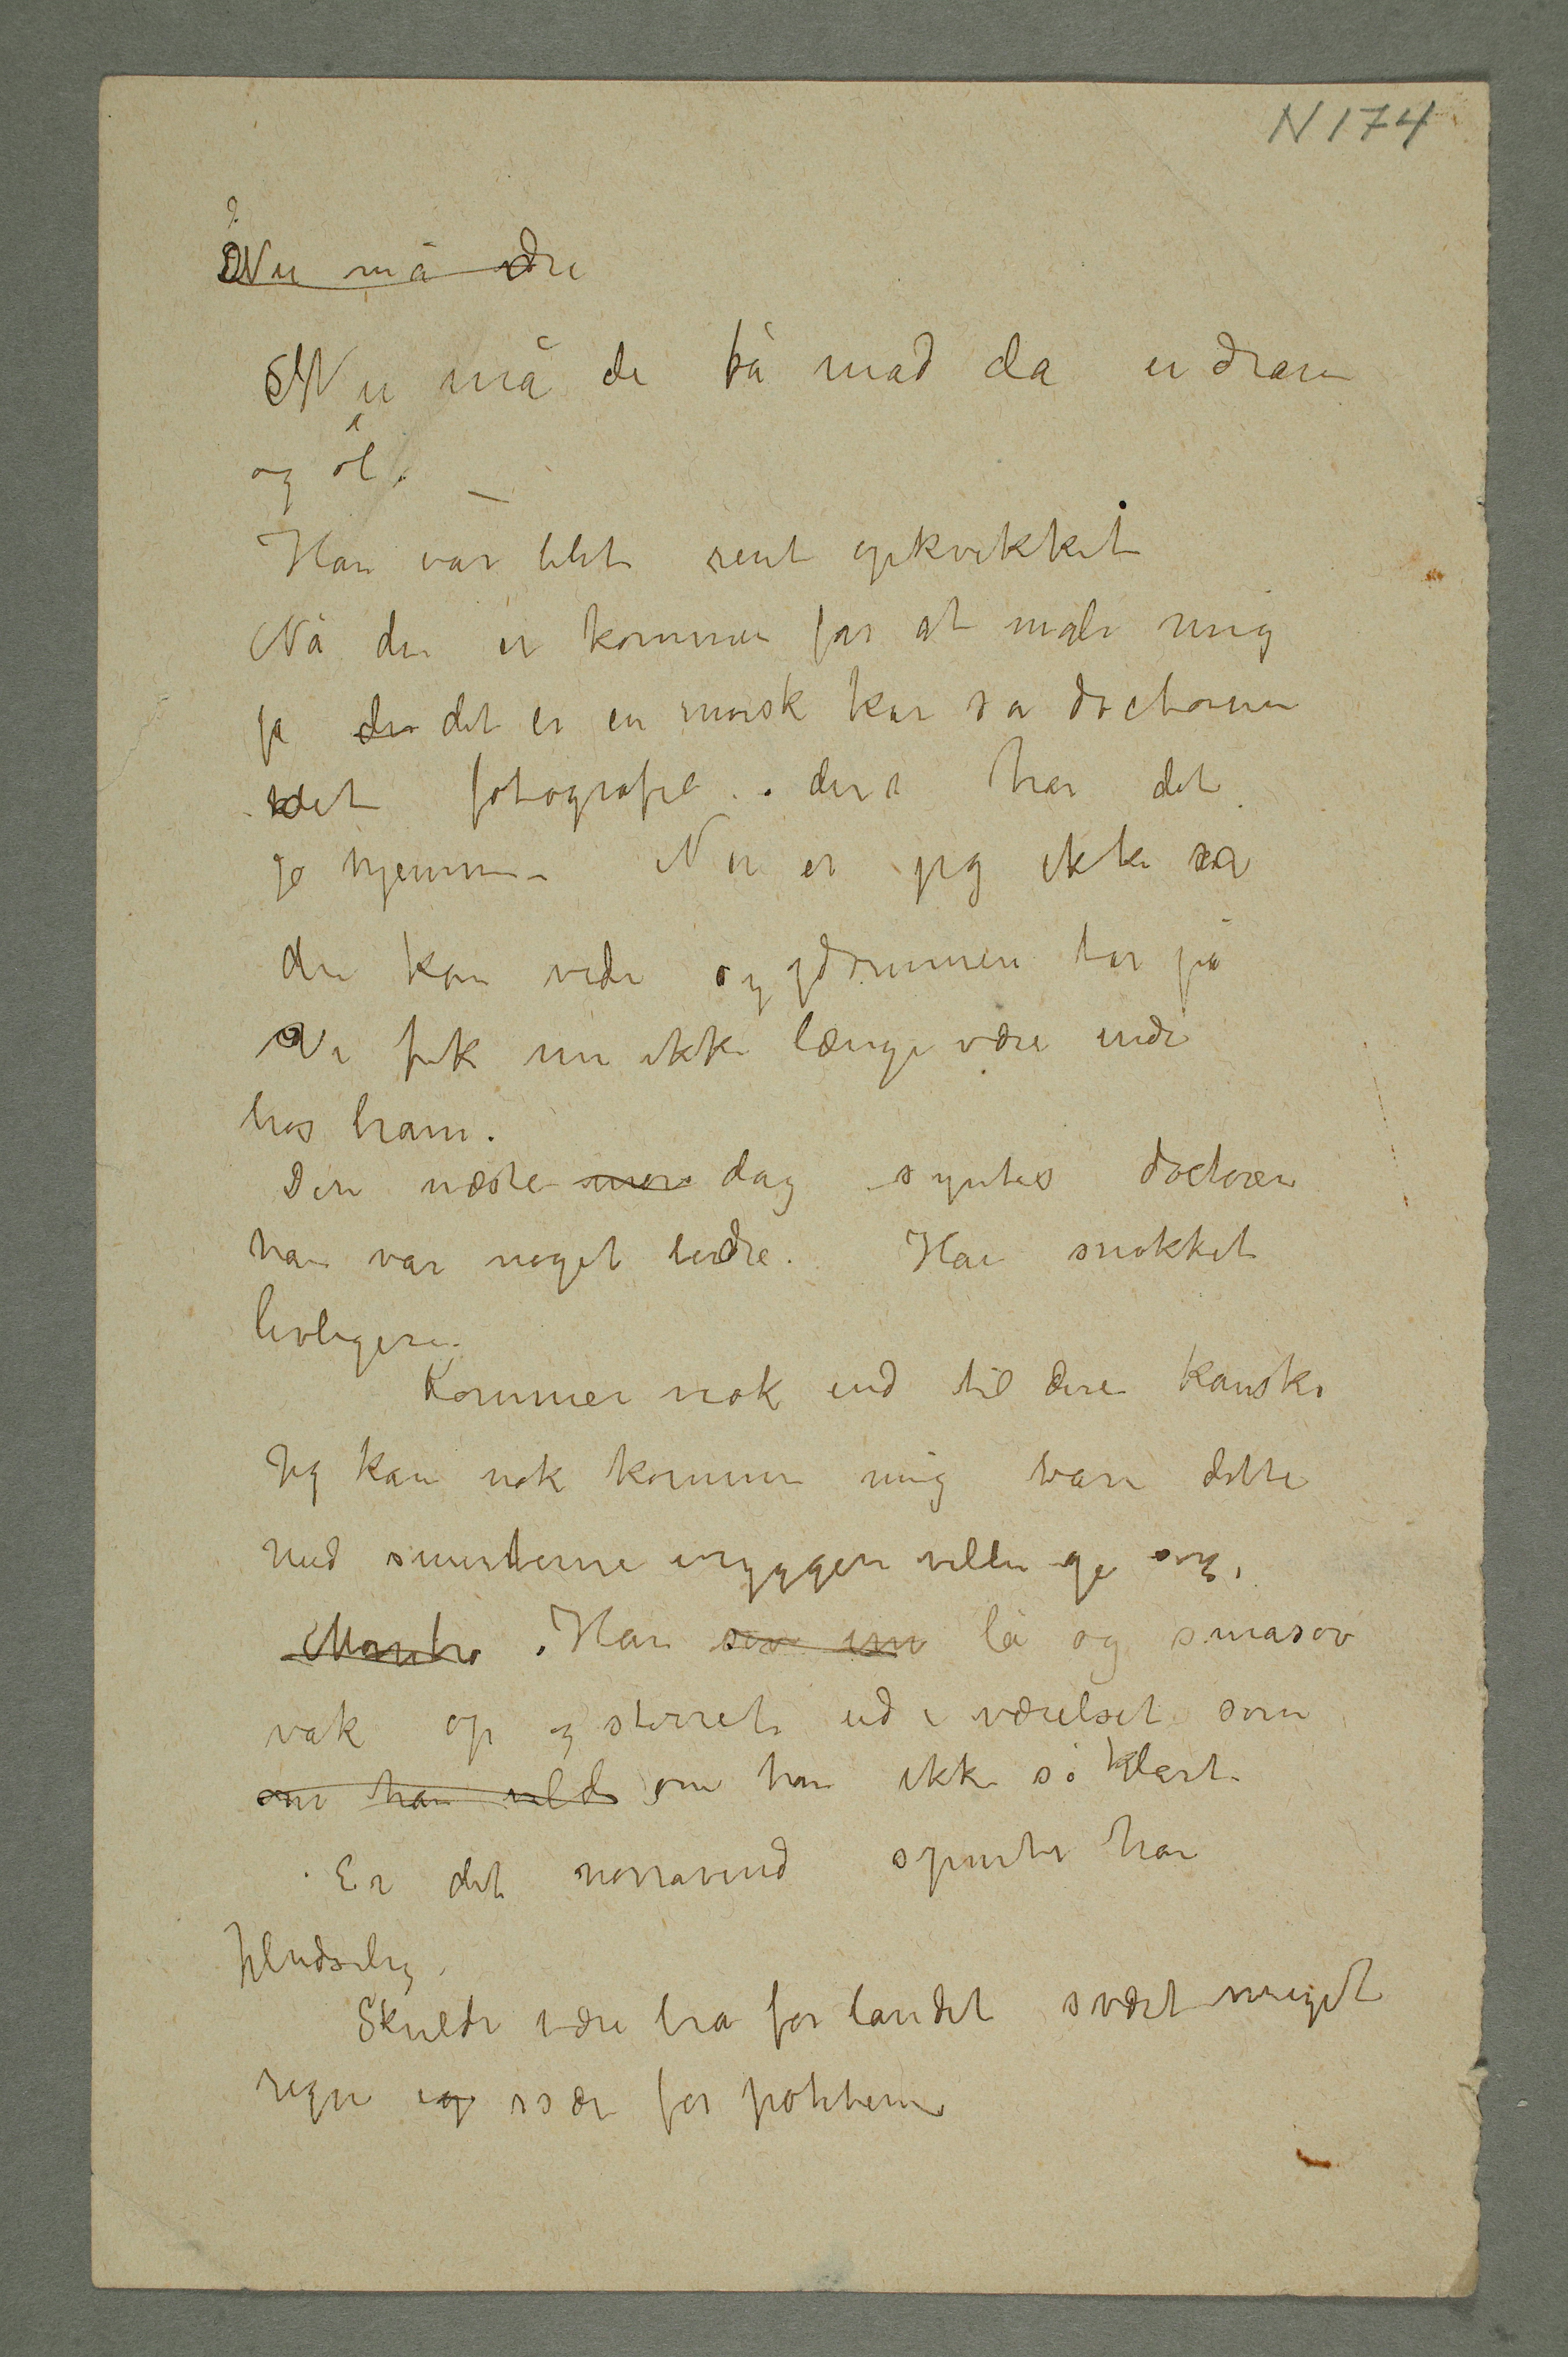 N 174
Nu må dre
Nu må de få mad da en dram
og øl.
Han var blit rent opkvikket
Nå du er kommen for at male mig
ja det er en snorsk kar sa doctoren
det fotografie . dere har det
ja hjemme. Nu er jeg ikke
du kan vide sygdommen tar på
Vi fik nu ikke længe være inde
hos ham.
Den næste mor dag syntes doctoren
han var noget bedre. Han snakket
livligere.
Kommer nok ind til dere kanske
Jeg kan nok komme mig bare dette
med smerterne i ryggen ville gi sig.
Han sov inn lå og småsov
vak op og stirret ud i værelset som
om han vilde om han ikke så klart
Er det norravind spurte han
pludselig.
Skulde være bra for landet svært meget
regn og svær for potterne